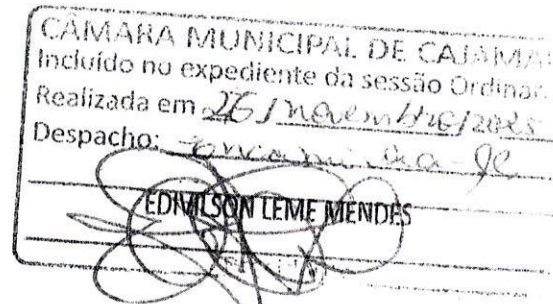 CÂMARA MUNICIPAL DE CAJAMA
Incluído no expediente da sessão Ordinar
Realizada em 26 / novembro / 2025
Despacho: encaminha-se
EDIVILSON LEME MENDES